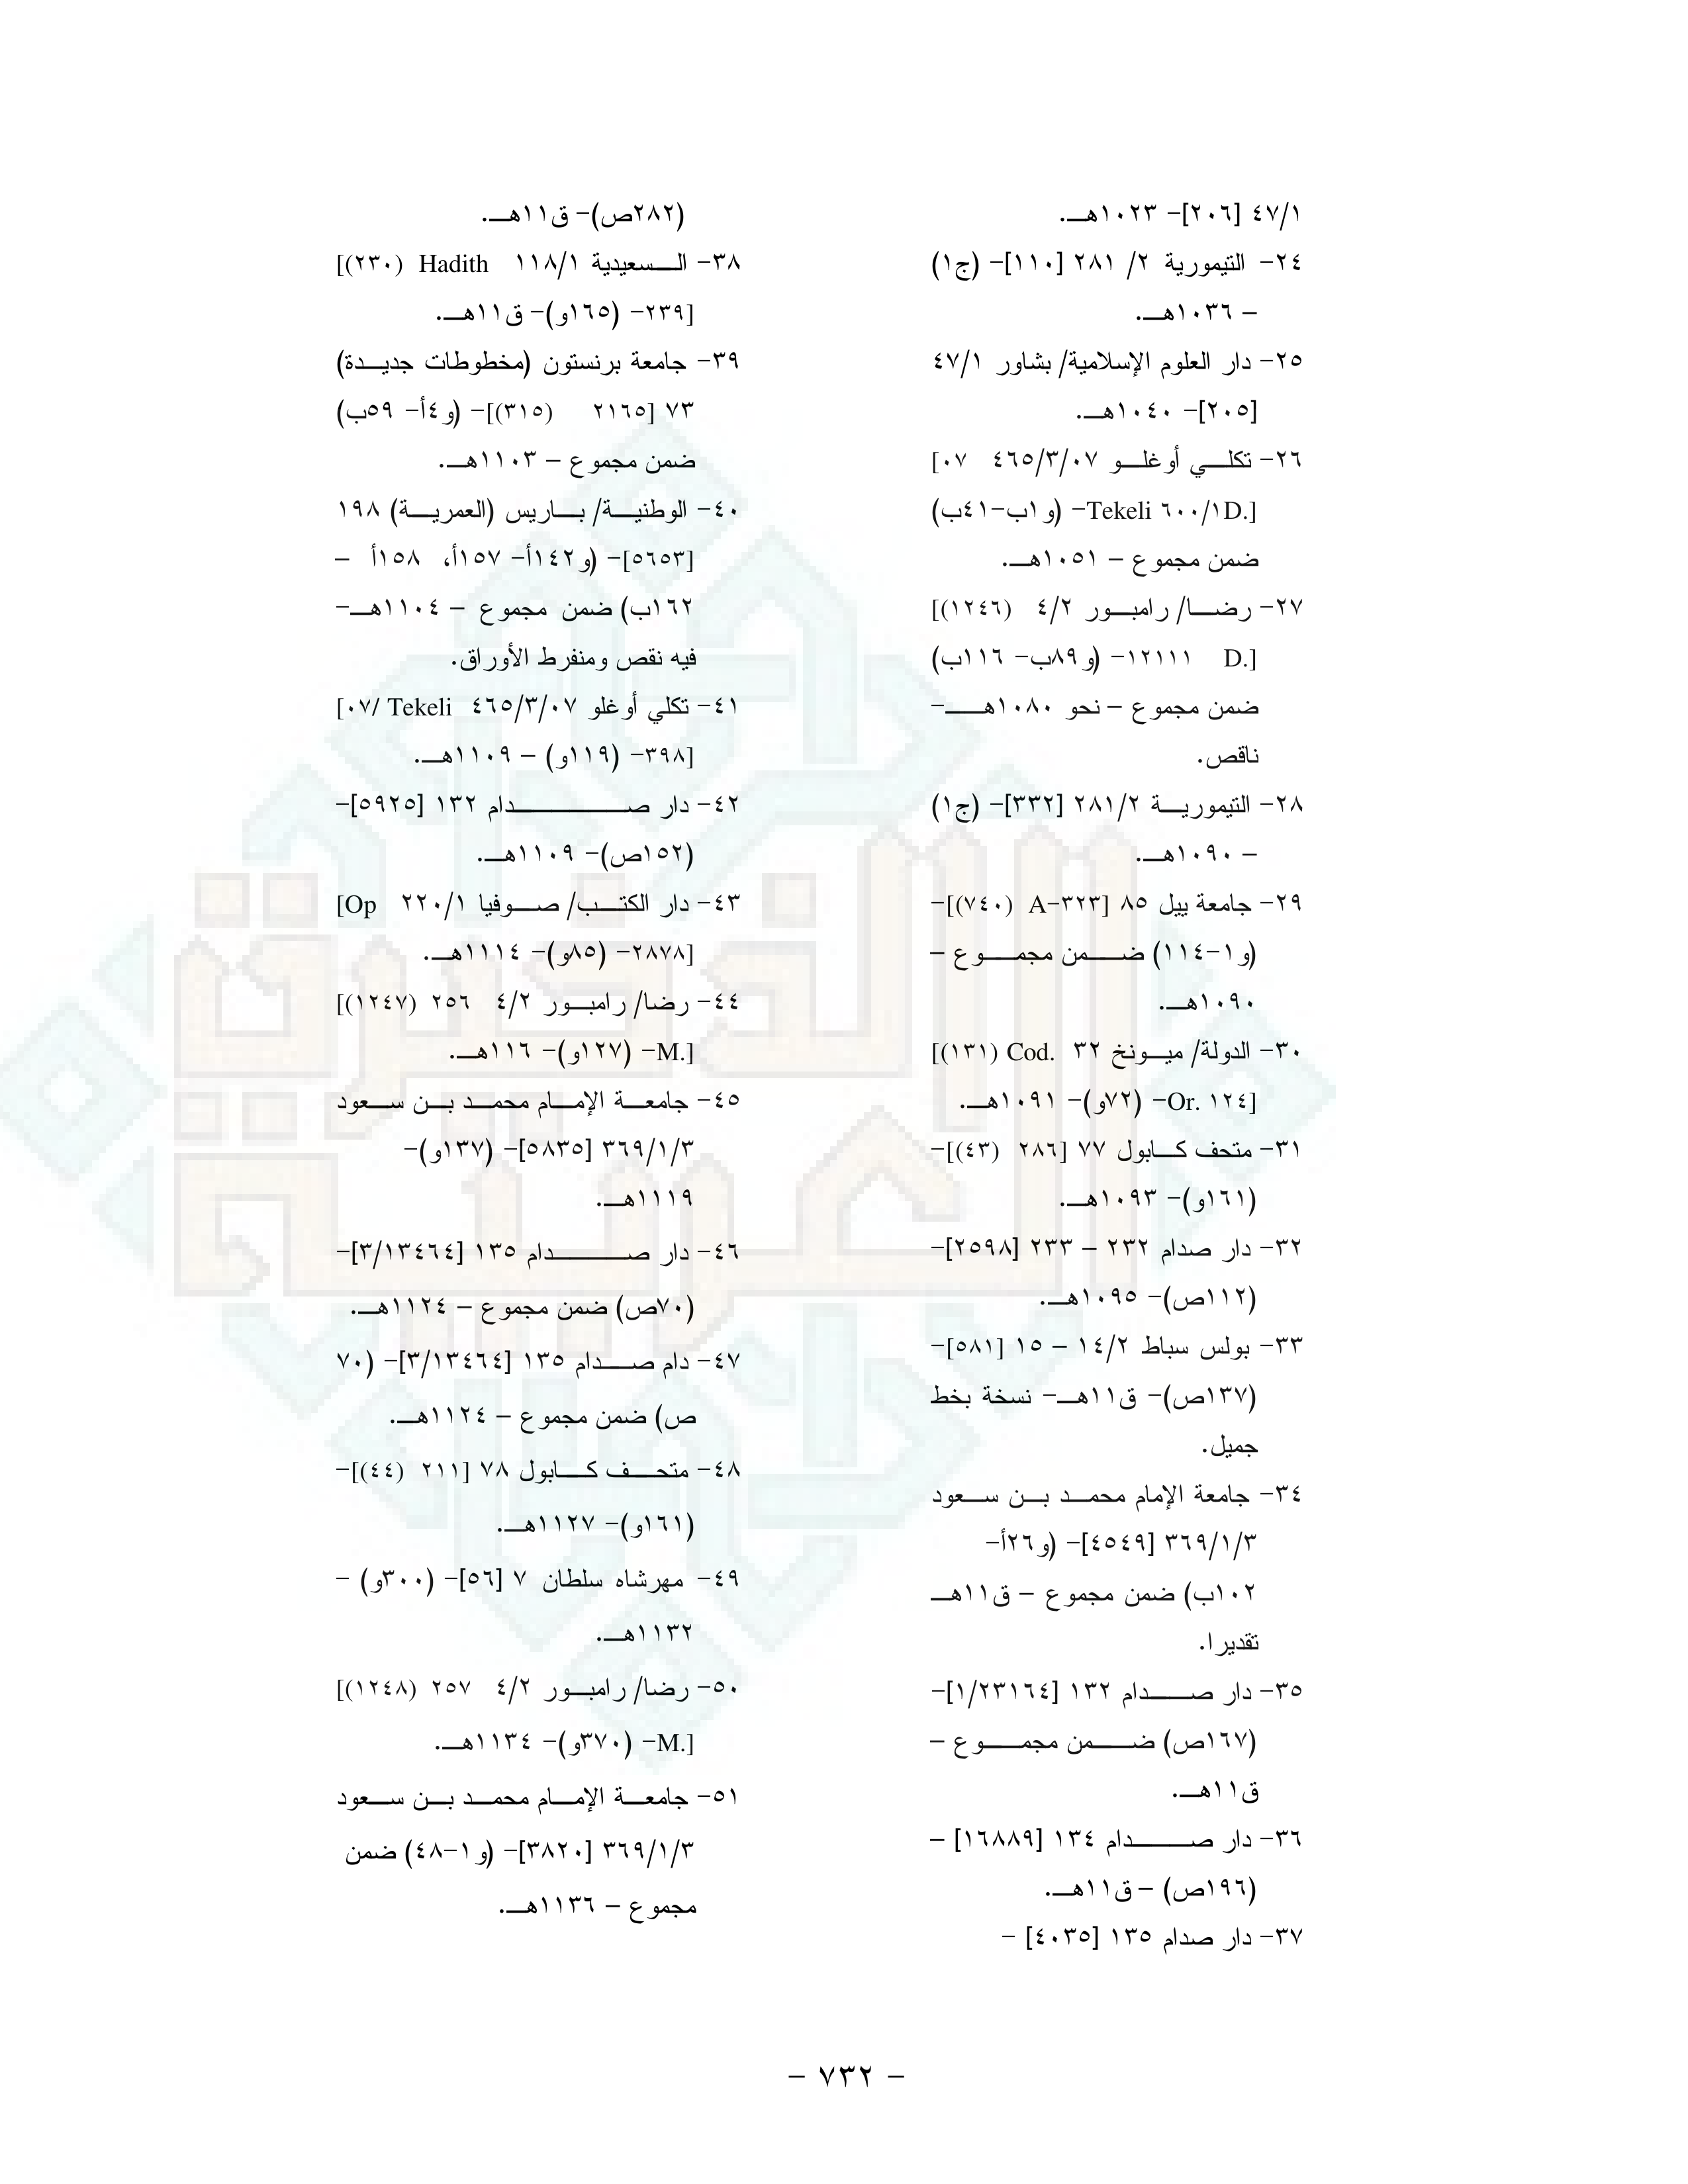 ٤٧/١ [٢٠٦]- ١٠٢٣هـ.
٢٤- التيمورية ٢/ ٢٨١ [١١٠]- (ج١)
– ١٠٣٦هـ.
٢٥- دار العلوم الإسلامية/ بشاور ٤٧/١
[٢٠٥]- ١٠٤٠هـ.
٢٦- تكلي أوغلو ٤٦٥/٣/٠٧ [٠٧
Tekeli ٦٠٠/١D.]- (و١ب-٤١ب)
ضمن مجموع – ١٠٥١هـ.
٢٧- رضا/ رامبور ٤/٢ [(١٢٤٦)
١٢١١١ D.]- (و٨٩ب- ١١٦ب)
ضمن مجموع – نحو ١٠٨٠هـ-
ناقص.
٢٨- التيمورية ٢٨١/٢ [٣٣٢]- (ج١)
– ١٠٩٠هـ.
٢٩- جامعة ييل ٨٥ [A-٣٢٣ (٧٤٠)]-
(و١-١١٤) ضمن مجموع –
١٠٩٠هـ.
٣٠- الدولة/ ميونخ ٣٢ [(١٣١) Cod.
Or. ١٢٤]- (٧٢و)- ١٠٩١هـ.
٣١- متحف كابول ٧٧ [٢٨٦ (٤٣)]-
(١٦١و)- ١٠٩٣هـ.
٣٢- دار صدام ٢٣٢ – ٢٣٣ [٢٥٩٨]-
(١١٢ص)- ١٠٩٥هـ.
٣٣- بولس سباط ١٤/٢ – ١٥ [٥٨١]-
(١٣٧ص)- ق١١هـ- نسخة بخط
جميل.
٣٤- جامعة الإمام محمد بن سعود
٣٦٩/١/٣ [٤٥٤٩]- (و٢٦أ-
١٠٢ب) ضمن مجموع – ق١١هـ
تقديرا.
٣٥- دار صدام ١٣٢ [١/٢٣١٦٤]-
(١٦٧ص) ضمن مجموع –
ق١١هـ.
٣٦- دار صدام ١٣٤ [١٦٨٨٩] –
(١٩٦ص) – ق١١هـ.
٣٧- دار صدام ١٣٥ [٤٠٣٥] -
(٢٨٢ص)- ق١١هـ.
٣٨- السعيدية ١١٨/١ [(٢٣٠) Hadith
٢٣٩]- (١٦٥و)- ق١١هـ.
٣٩- جامعة برنستون (مخطوطات جديدة)
٧٣ [٢١٦٥ (٣١٥)]- (و٤أ- ٥٩ب)
ضمن مجموع – ١١٠٣هـ.
٤٠- الوطنية/ باريس (العمرية) ١٩٨
[٥٦٥٣]- (و١٤٢أ- ١٥٧أ، ١٥٨أ –
١٦٢ب) ضمن مجموع – ١١٠٤هـ-
فيه نقص ومنفرط الأوراق.
٤١- تكلي أوغلو ٤٦٥/٣/٠٧ [٠٧/ Tekeli
٣٩٨]- (١١٩و) – ١١٠٩هـ.
٤٢- دار صدام ١٣٢ [٥٩٢٥]-
(١٥٢ص)- ١١٠٩هـ.
٤٣- دار الكتب/ صوفيا ٢٢٠/١ [Op
٢٨٧٨]- (٨٥و)- ١١١٤هـ.
٤٤- رضا/ رامبور ٤/٢ ٢٥٦ [(١٢٤٧)
M.]- (١٢٧و)- ١١٦هـ.
٤٥- جامعة الإمام محمد بن سعود
٣٦٩/١/٣ [٥٨٣٥]- (١٣٧و)-
١١١٩هـ.
٤٦- دار صدام ١٣٥ [٣/١٣٤٦٤]-
(٧٠ص) ضمن مجموع – ١١٢٤هـ.
٤٧- دام صدام ١٣٥ [٣/١٣٤٦٤]- (٧٠
ص) ضمن مجموع – ١١٢٤هـ.
٤٨- متحف كابول ٧٨ [٢١١ (٤٤)]-
(١٦١و)- ١١٢٧هـ.
٤٩- مهرشاه سلطان ٧ [٥٦]- (٣٠٠و) -
١١٣٢هـ.
٥٠- رضا/ رامبور ٤/٢ ٢٥٧ [(١٢٤٨)
M.]- (٣٧٠و)- ١١٣٤هـ.
٥١- جامعة الإمام محمد بن سعود
٣٦٩/١/٣ [٣٨٢٠]- (و١-٤٨) ضمن
مجموع – ١١٣٦هـ.
– ٧٣٢ –